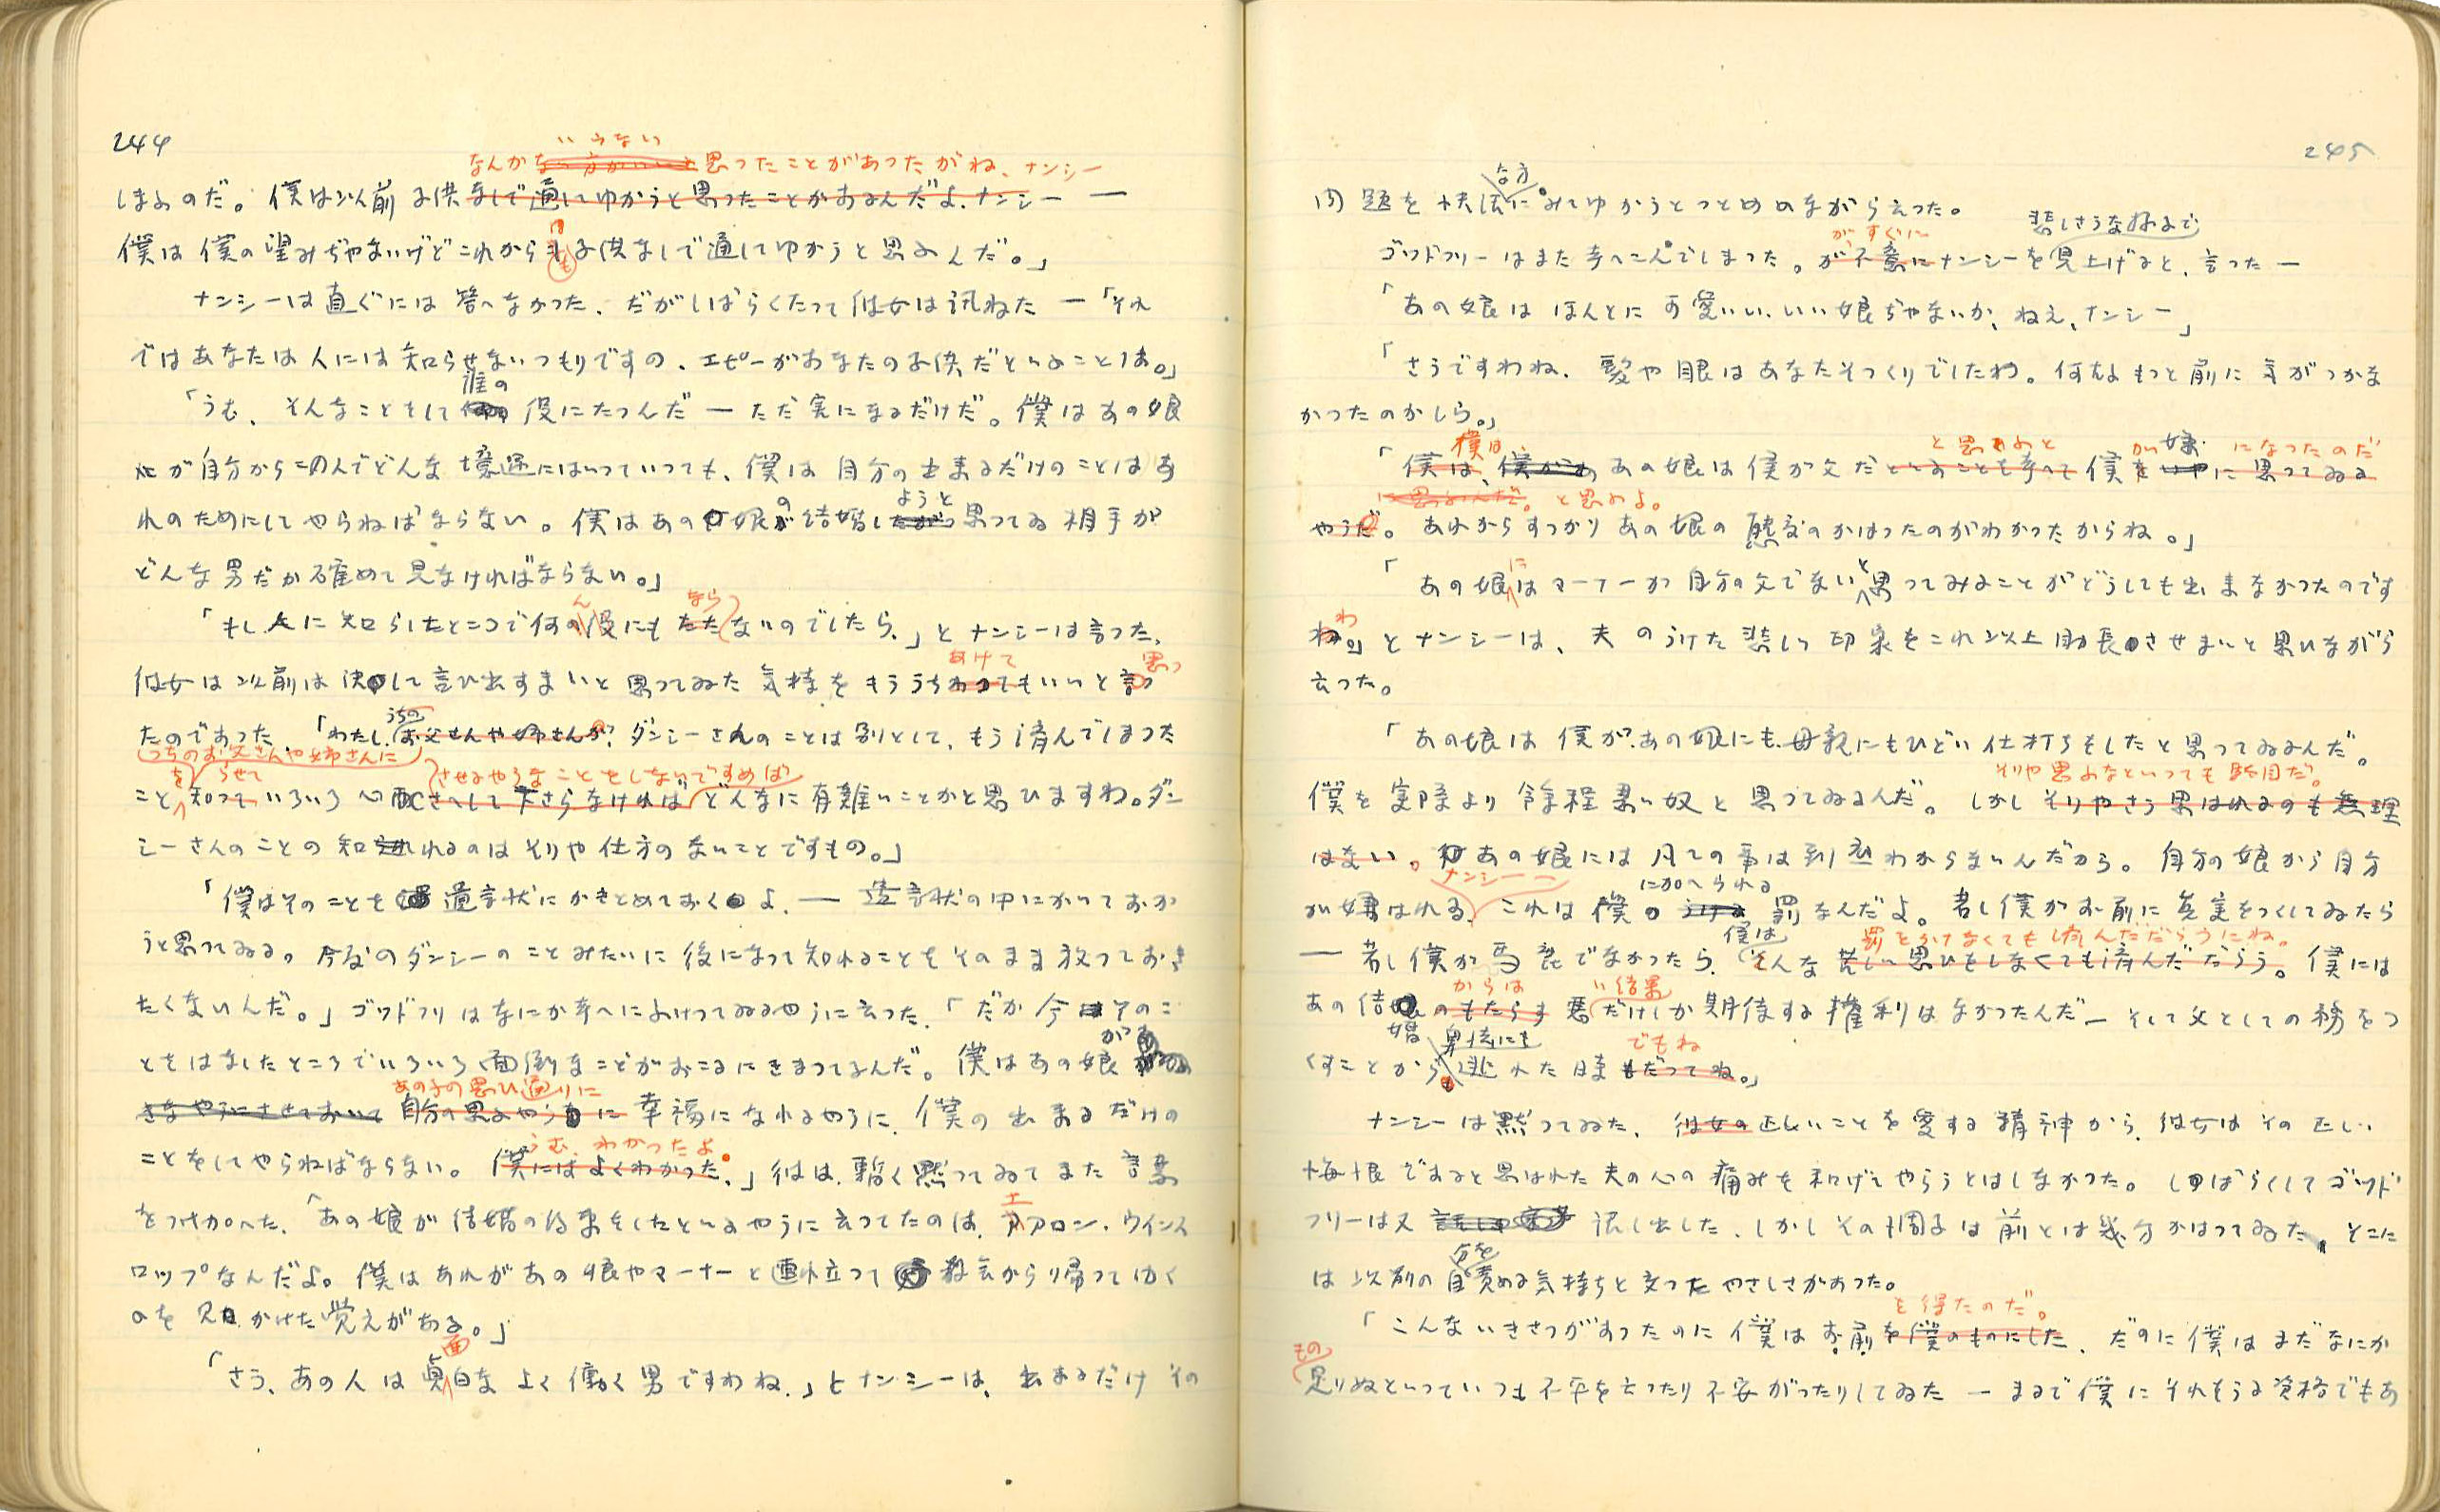 244
いらない
なんかな方がいいと思つたことがあつたがね、ナンシー
しまふのだ。僕は以前子供なしで通してゆかうと思つたことがあるんだよ、ナンシー ―
は
僕は僕の望みぢやないけどこれからも子供なしで通してゆかうと思ふんだ。」
ナンシーは直ぐには答へなかつた、だがしばらくたつて彼女は訊ねた ―「それ
ではあなたは人には知らせないつもりですの、エピーがあなたの子供だといふことは。」
誰の
「うむ、そんなことをして 役にたつんだ ― ただ害になるだけだ。僕はあの娘
が自分からこのんでどんな境遇にはいつていつても、僕は自分の出来るだけのことはあ
の ようと
れのためにしてやらねばならない。僕はあの娘が結婚したがつ思つてゐる相手が
どんな男だか確めて見なければならない。」
ん なら
「もし人に知らしたところで何の役にもたたないのでしたら、」とナンシーは言つた、
あけて 思つ
彼女は以前は決して言ひ出すまいと思つてゐた気持をもううちわつてもいいと言つ
うちの
たのであつた、「わたし、お父さんや姉さんが、ダンシーさんのことは別として、もう済んでしまつた
うちのお父さんや姉さんに
を らせて させるやうなことをしないですめば
こと知つていろいろ心配さへして下さらなければどんなに有難いことかと思ひますわ。ダン
シーさんのことの知れるのはそりや仕方のないことですもの。」
「僕はそのことを遺言状にかきとめておくよ、― 遺言状の中にかいておか
うと思つてゐる。今度のダンシーのことみたいに後になつて知れることをそのまま放つておき
たくないんだ。」ゴツドフリはなにか考へにふけつてゐるやうに云つた、「だが今はそのこ
があ
とをはなしたところでいろいろ面倒なことがおこるにきまつてるんだ。僕はあの娘
あの子の思ひ通りに
きなやうにさせておいて 自分の思ふやうに幸福になれるやうに、僕の出来るだけの
うむ、わかつたよ。
ことをしてやらねばならない。僕にはよくわかつた、」彼は、暫く黙つてゐてまた言葉
をつけ加へた、「あの娘が結婚の約束をしたといふやうに云つてたのは、アアロン・ウインス
ロツプなんだよ。僕はあれがあの娘やマーナーと連れ立つて教会から帰つてゆく
のを見かけた覚えがある。」
面
「さう、あの人は真白なよく働く男ですわね、」とナンシーは、出来るだけその
245
な方
問題を快活にみてゆかうとつとめのながら云つた。
が、すぐに 悲しさうな好みで
ゴツドフリーはまた考へこんでしまつた。が不意にナンシーを見上げると、言つた ―
「あの娘はほんとに可愛いい、いい娘ぢやないか、ねえ、ナンシー」
「さうですわね、髪や眼はあなたそつくりでしたわ。何故もつと前に気がつかな
かつたのかしら。」
僕は と思ふと が 嫌 になつたのだ
「僕は、僕があ あの娘は僕が父だといふことを考へて僕をいやに思つてゐる
と思ふよ。
やうだ。あれからすつかりあの娘の態度のかはつたのがわかつたからね。」
に と
「あの娘はマーナーが自分の父でない思つてみることがどうしても出来なかつたのです
わ
ね。」とナンシーは、夫のうけた悲しい印象をこれ以上助長させまいと思ひながら
云つた。
「あの娘は僕が、あの娘にも、母親にもひどい仕打ちをしたと思つてゐるんだ。
そりや思ふなといつても駄目だ。
僕を実際より余程悪い奴と思つてゐるんだ。しかしそりやさう思はれるのも無理
はない。あの娘には凡ての事は到底わからないんだから。自分の娘から自分
ナンシー に加へられる
が嫌はれる、これは僕の うける 罰なんだよ。若し僕がお前に真実をつくしてゐたら
僕は 罰をうけなくても済んだだらうにね。
― 若し僕が馬鹿でなかつたら、そんな苦しい思ひをしなくても済んだだらう。僕には
からは い結果
あの結のもたらす悪だけしか期待する権利はなかつたんだ ― そして父としての務をつ
婚 卑怯にも でもね
くすことから逃れた時もだつてね。」
ナンシーは黙つてゐた、彼女の正しいことを愛する精神から、彼女はその正しい
悔恨であると思はれた夫の心の痛みを和げてやらうとはしなかつた。しばらくしてゴツド
フリーは又 話し出した、しかしその調子は前とは幾分かはつてゐた、そこに
分を
は以前の自責める気持ちと交つたやさしさがあつた。
を得たのだ。
「こんないきさつがあつたのに僕はお前を僕のものにした、だのに僕はまだなにか
もの
足りぬといつていつも不平を云つたり不安がつたりしてゐた ― まるで僕にそれをうる資格でもあ